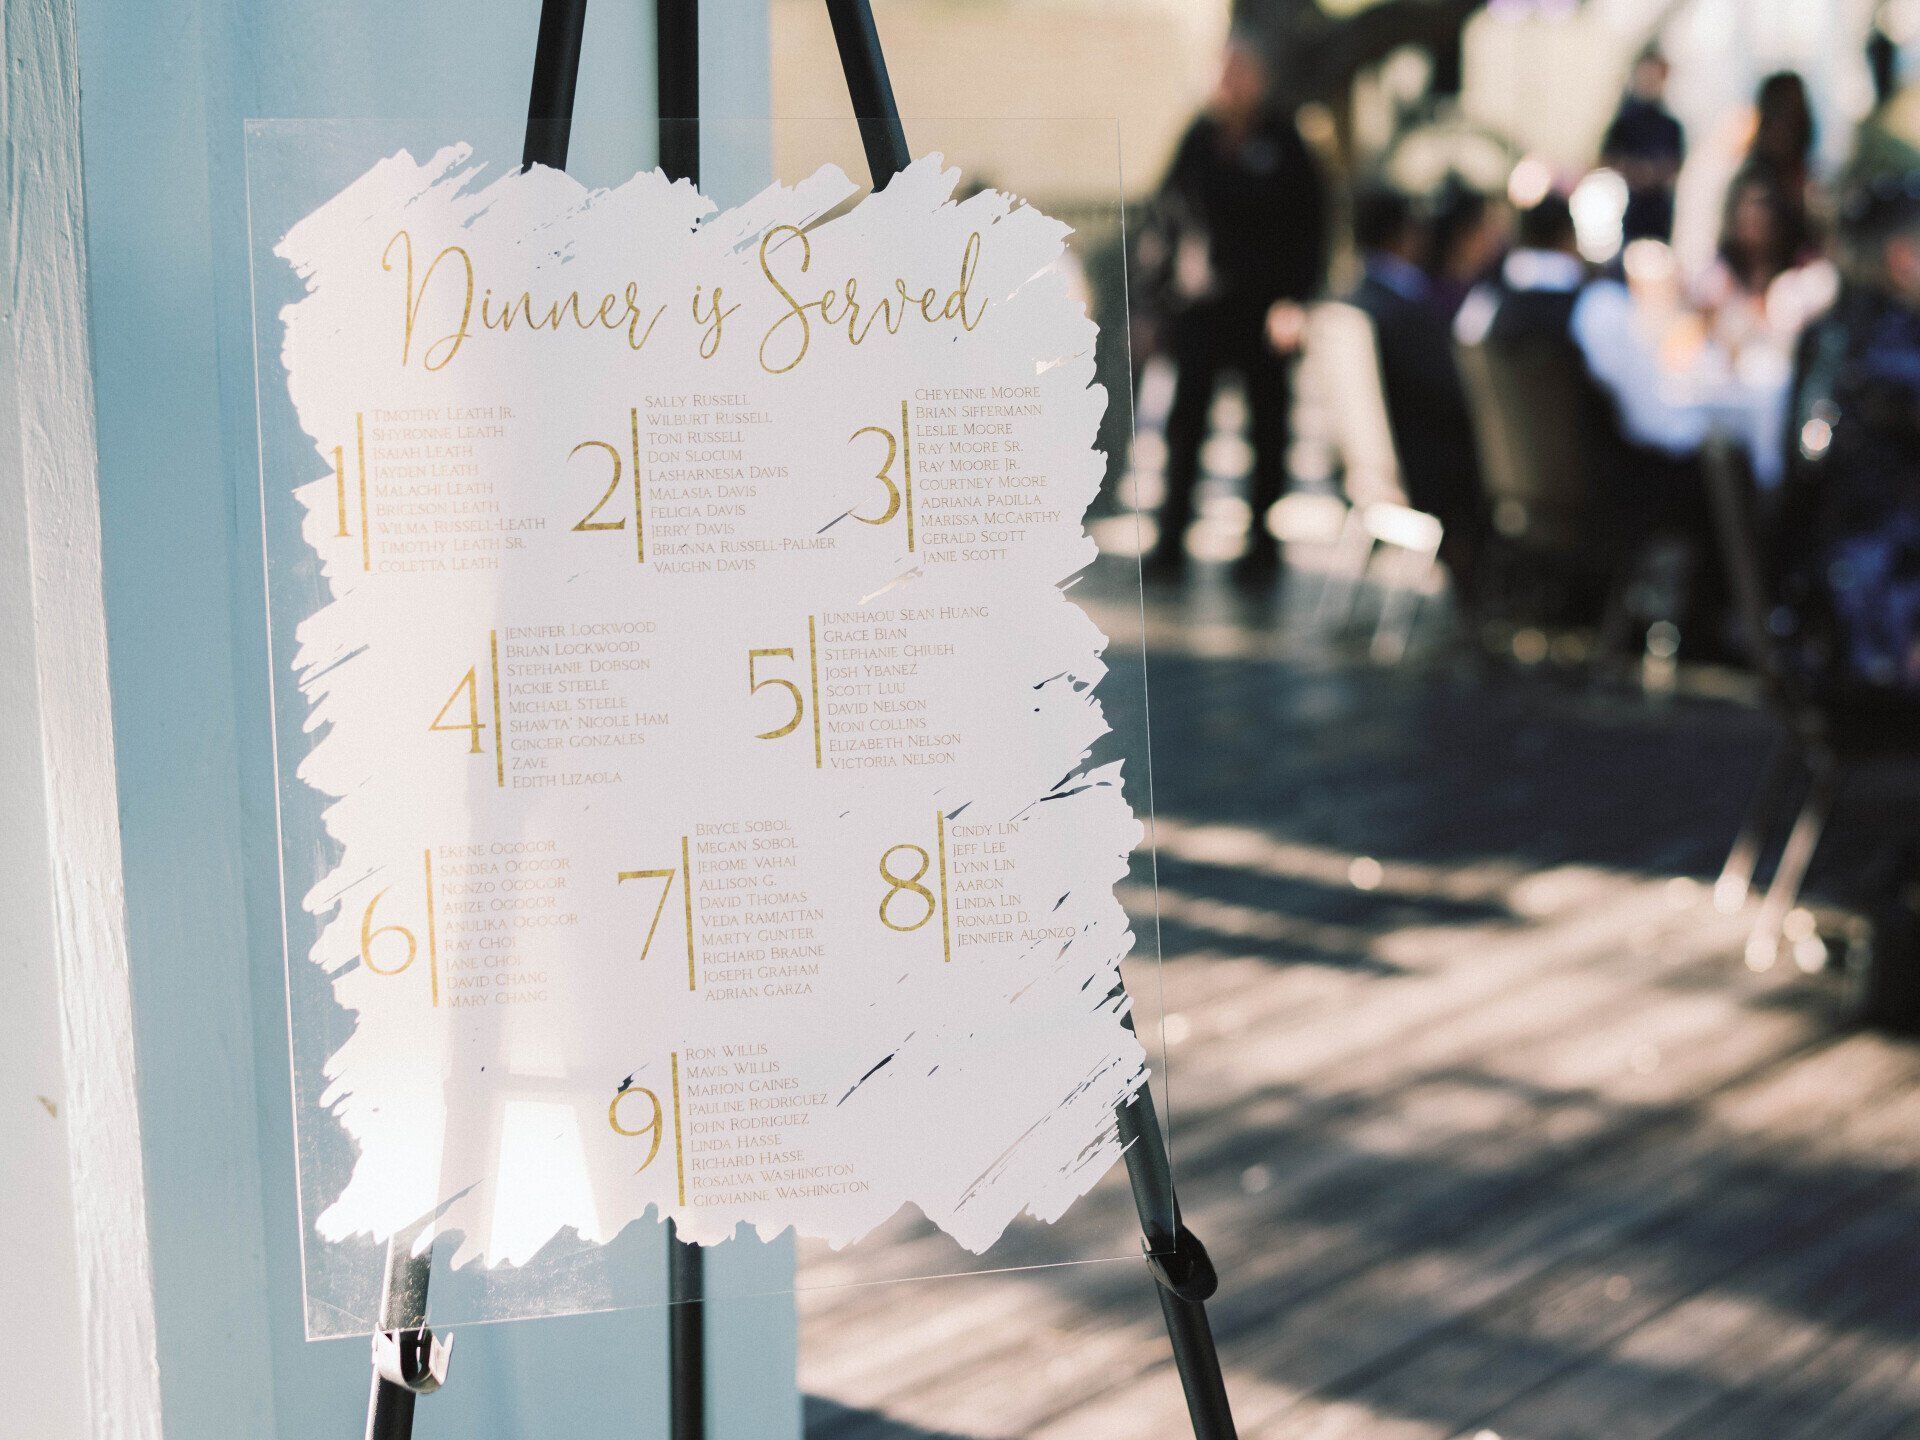 Dinner is Served
1
Timothy Leath Jr.
Shyronne Leath
Isaiah Leath
Jayden Leath
Malachi Leath
Briceson Leath
Wilma Russell-Leath
Timothy Leath Sr.
Coletta Leath
2
Sally Russell
Wilburt Russell
Toni Russell
Don Slocum
Lasharnesia Davis
Malasia Davis
Felicia Davis
Jerry Davis
Brianna Russell-Palmer
Vaughn Davis
3
Cheyenne Moore
Brian Siffermann
Leslie Moore
Ray Moore Sr.
Ray Moore Jr.
Courtney Moore
Adriana Padilla
Marissa McCarthy
Gerald Scott
Janie Scott
4
Jennifer Lockwood
Brian Lockwood
Stephanie Dobson
Jackie Steele
Michael Steele
Shawta' Nicole Ham
Ginger Gonzales
Zave
Edith Lizaola
5
Junnhaou Sean Huang
Grace Bian
Stephanie Chiueh
Josh Ybanez
Scott Luu
David Nelson
Moni Collins
Elizabeth Nelson
Victoria Nelson
6
Ekene Ogogor
Sandra Ogogor
Nonzo Ogogor
Arize Ogogor
Anulika Ogogor
Ray Choi
Jane Choi
David Chang
Mary Chang
7
Bryce Sobol
Megan Sobol
Jerome Vahai
Allison G.
David Thomas
Veda Ramjattan
Marty Gunter
Richard Braune
Joseph Graham
Adrian Garza
8
Cindy Lin
Jeff Lee
Lynn Lin
Aaron
Linda Lin
Ronald D.
Jennifer Alonzo
9
Ron Willis
Mavis Willis
Marion Gaines
Pauline Rodriguez
John Rodriguez
Linda Hasse
Richard Hasse
Rosalva Washington
Giovianne Washington